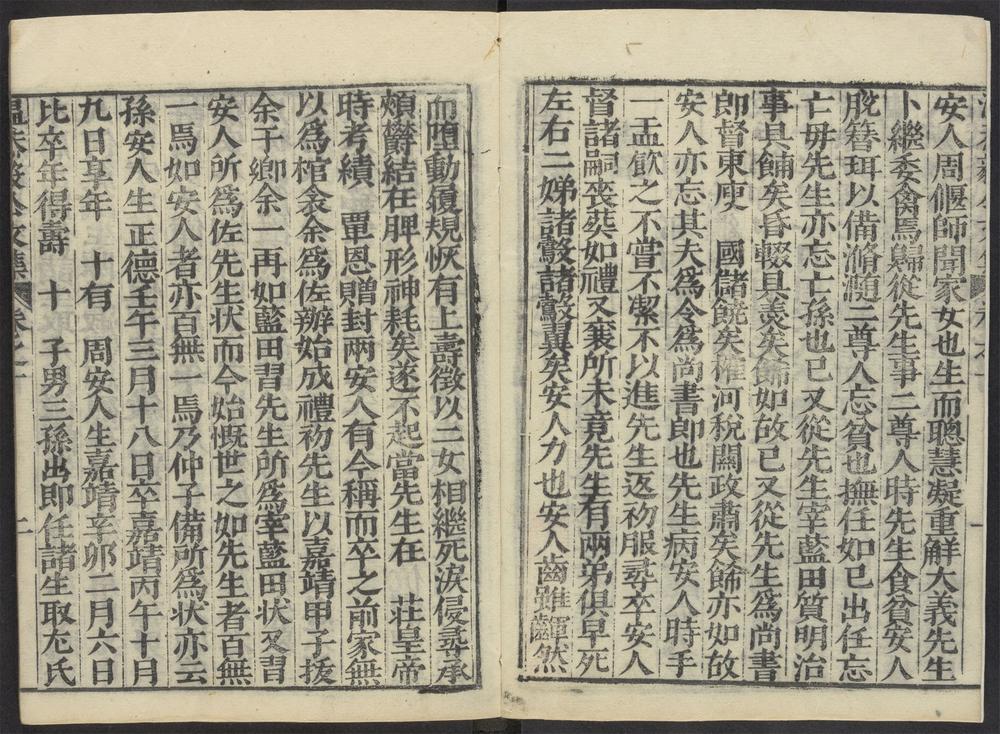 安人周偃師聞家女也生而聰慧凝重觧大義先生
卜繼委禽焉歸從先生事二尊人時先生食貧安人
脫簪珥以備滫瀡二尊人忘貧也撫任如已出任忘
亡毋先生亦忘亡孫也已又從先生宰藍田質明治
事具餔矣昏輟具羨矣飾如故已又從先生爲尚書
郎督東庾　國儲饒矣榷河稅關政肅矣飾亦如故
安人亦忘其夫爲令爲尚書郎也先生病安人時手
一盂飲之不嘗不潔不以進先生返初服尋卒安人
督諸嗣喪葬如禮又襄所未竟先生有兩弟俱早死
左右二娣諸鷇諸鷇翼矣安人力也安人齒雖
而墮動履規恢有上壽徵以二女相繼死淚侵尋承
頰欝結在脾形神耗矣遂不起當先生在　莊皇帝
時考績　覃恩贈封兩安人有今稱而卒之前家無
以爲棺衾余爲佐辦始成禮初先生以嘉靖甲子拔
余于鄉余一再如藍田習先生所爲宰藍田状又習
安人所爲佐先生状而今始慨世之如先生者百無
一焉如安人者亦百無一焉乃仲子備所爲状亦云
孫安人生正德壬午三月十八日卒嘉靖丙午十月
九日享年　十有　周安人生嘉靖辛卯二月六日
比卒年得壽　十　子男三孫出即任諸生取尤氏